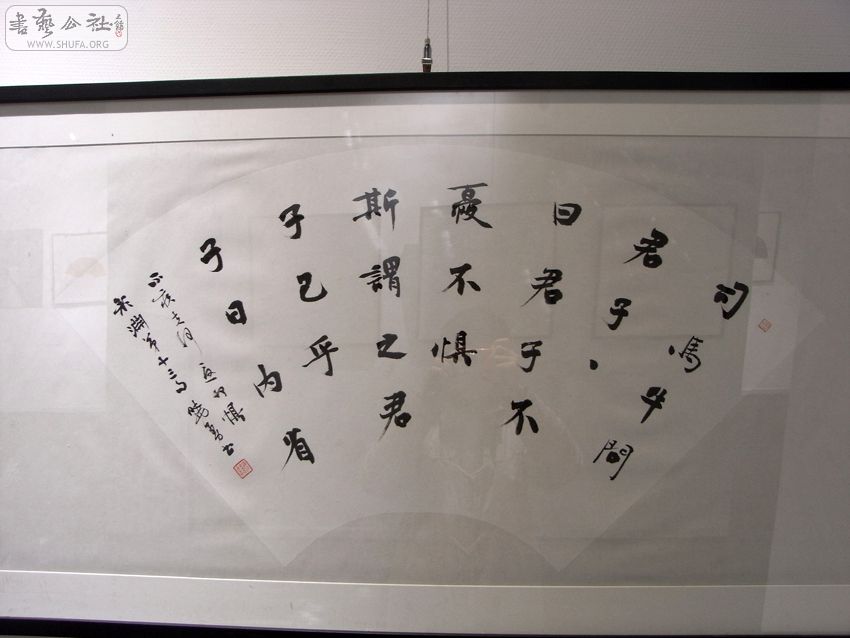 書藝公社
WWW.SHUFA.ORG
司馬牛問
君子、
曰君子不
憂不懼
斯謂之君
子已乎
子曰内省